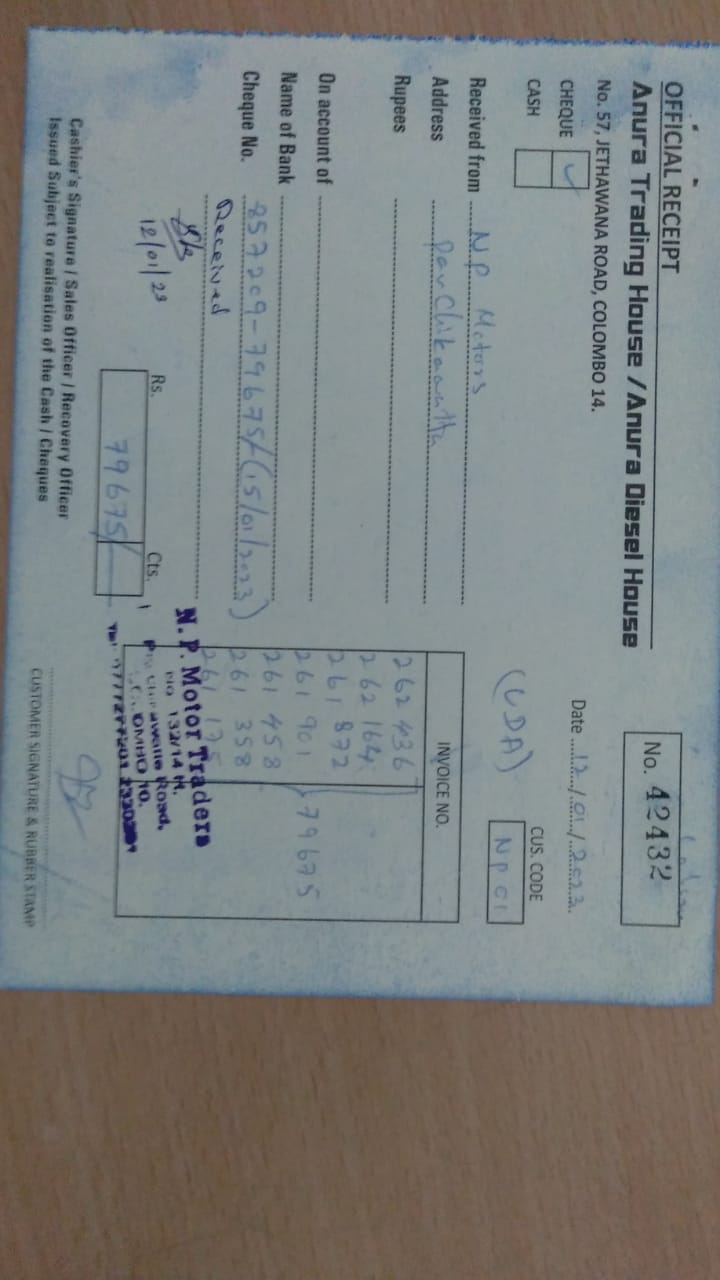 OFFICIAL RECEIPT
Anura Trading House / Anura Diesel House
No. 57, JETHAWANA ROAD, COLOMBO 14.
No. 42432
Date 12/01/2023
CHEQUE ✓
CASH
(UDA)
CUS. CODE
NP 01
Received from NP Motors
Address
Rupees
On account of
Name of Bank
Cheque No. 857209-79675/-(15/01/2023)
Received
12/01/23
INVOICE NO.
262 436
262 164
261 872
261 901 79675
261 458
261 358
261 175
Rs. Cts.
79675/-
N. P. Motor Traders
NO 132/14 H.
Road,
Cashier's Signature / Sales Officer / Recovery Officer
Issued Subject to realisation of the Cash / Cheques
CUSTOMER SIGNATURE & RUBBER STAMP